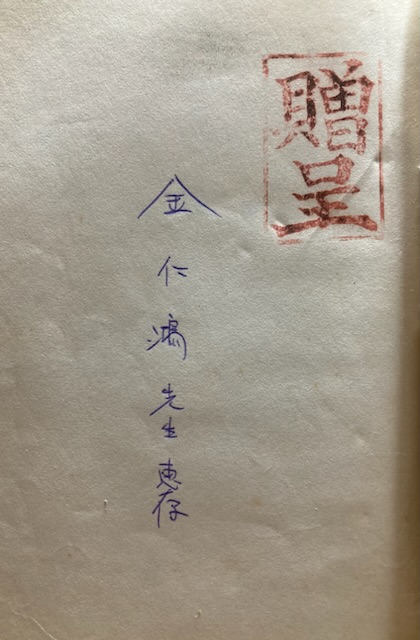 贈呈
金仁鴻先生惠存